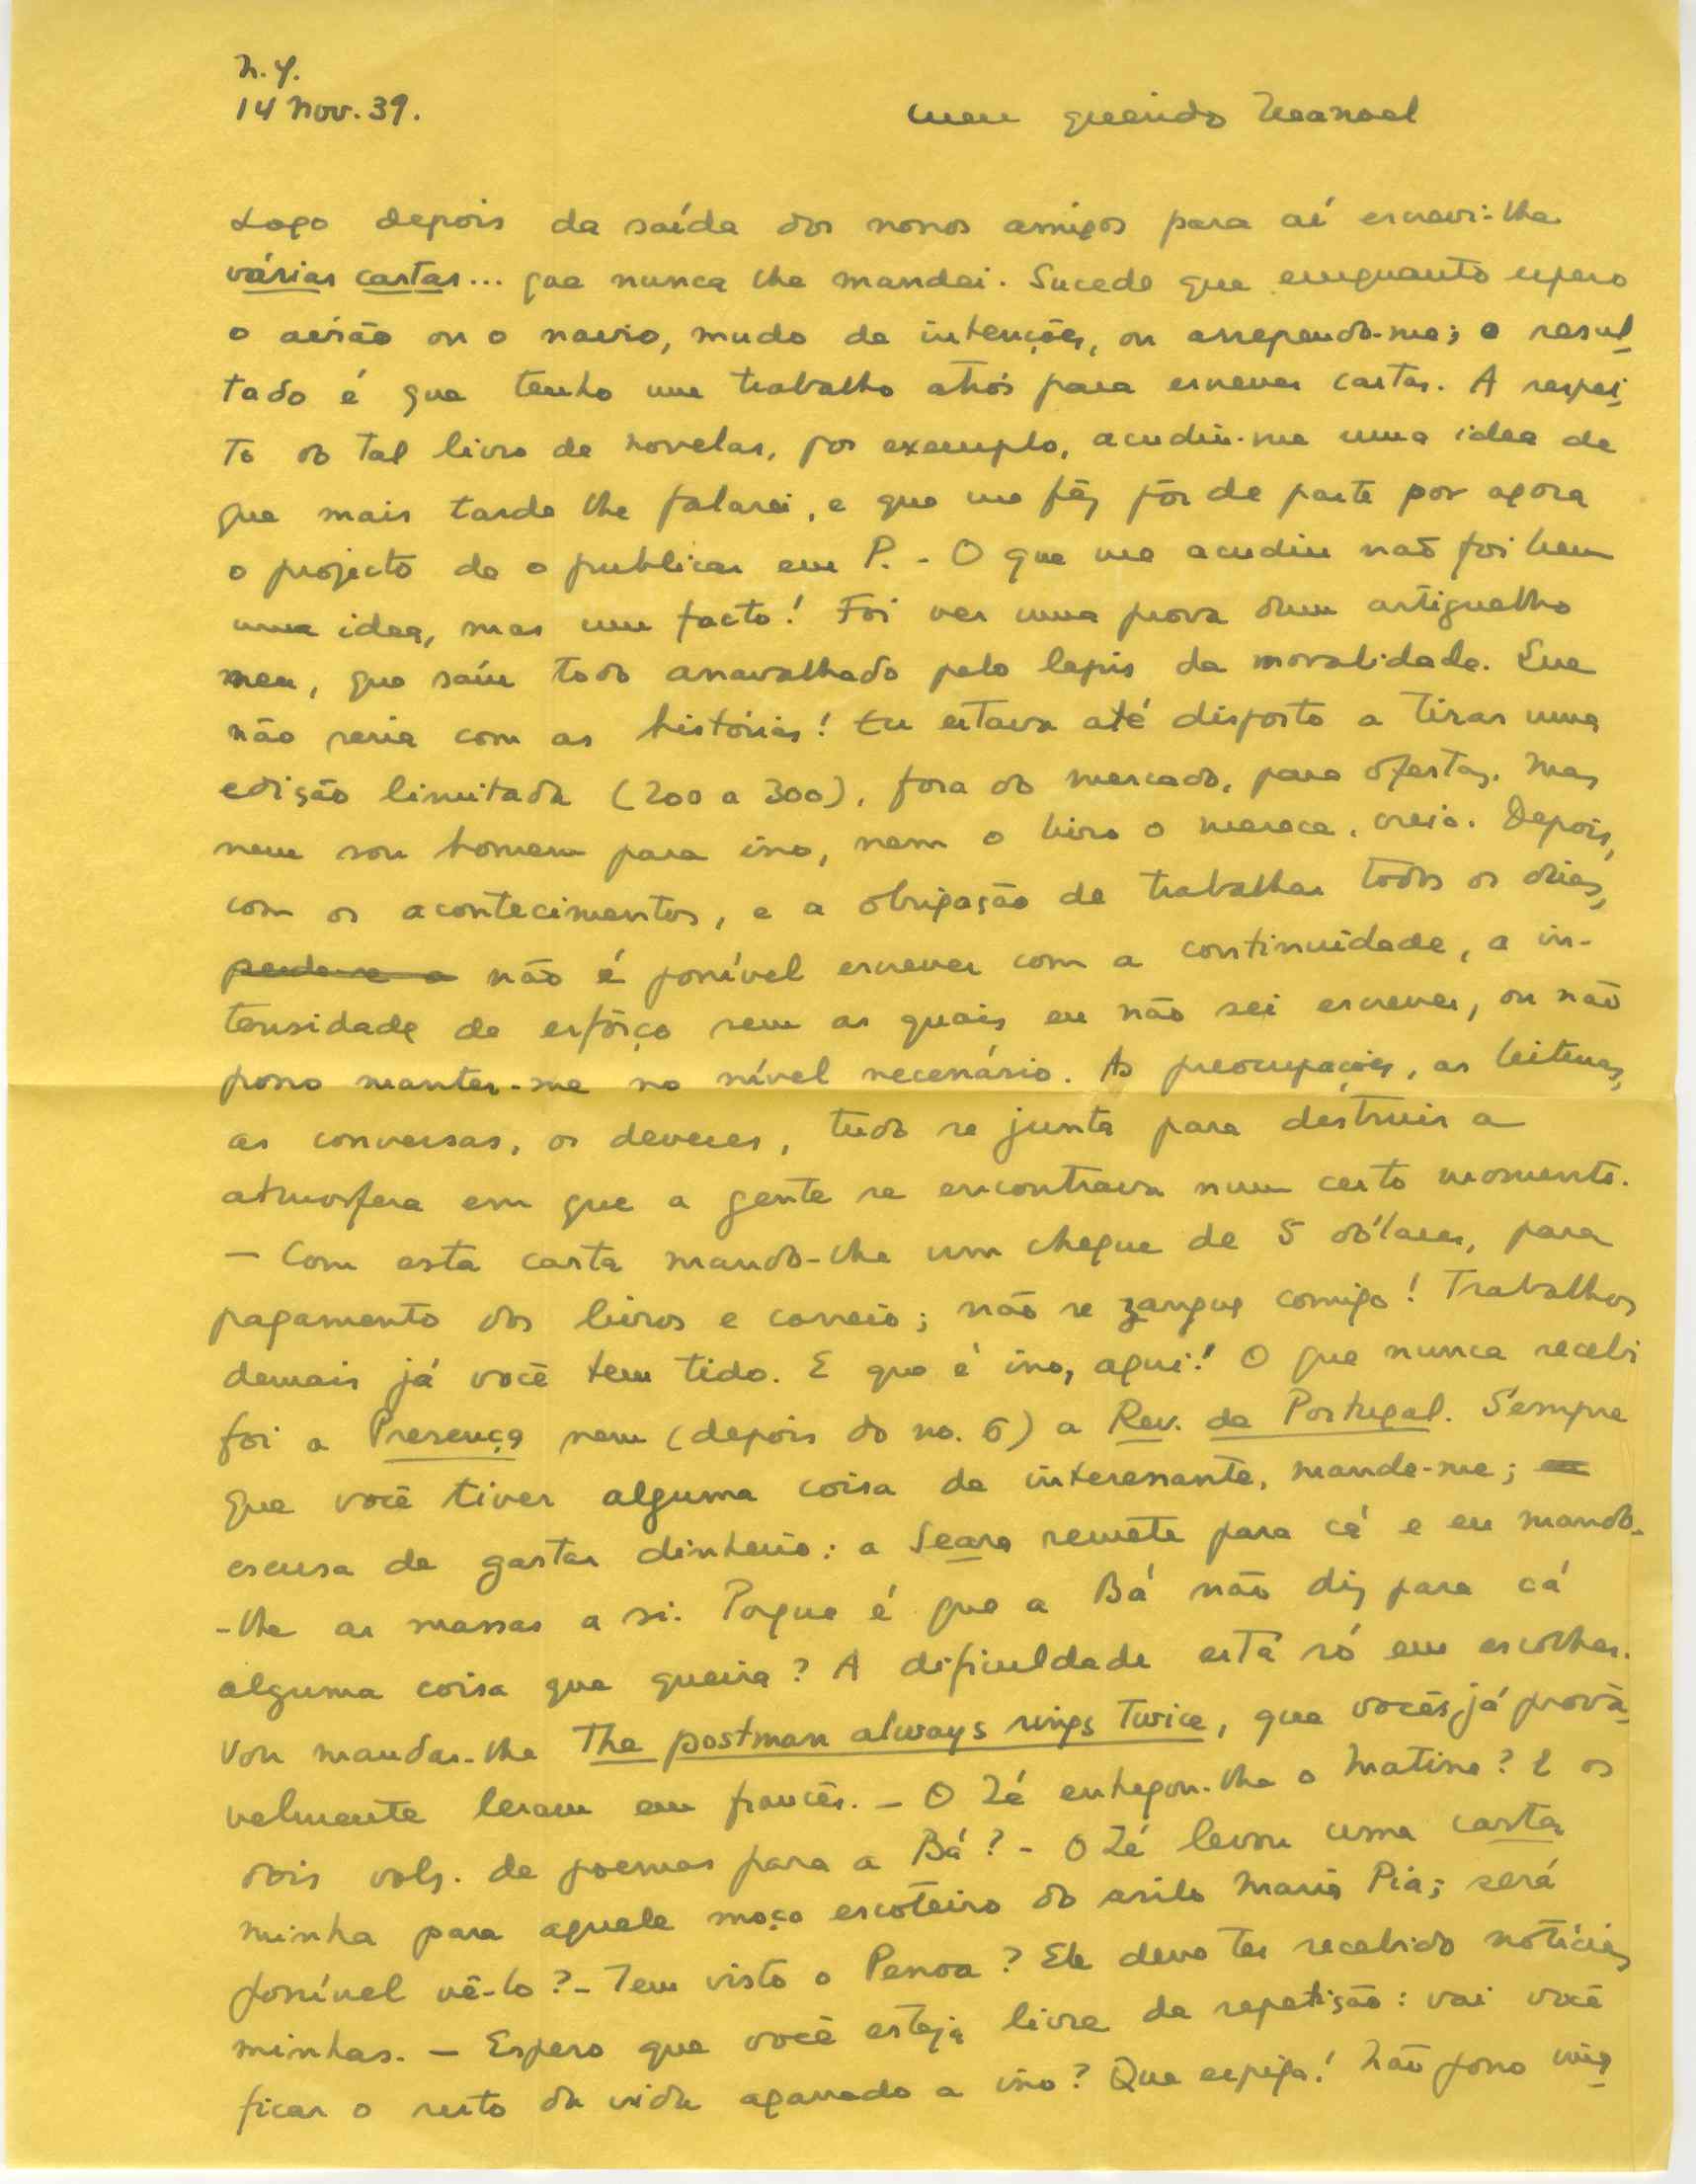 N.Y.
14 Nov. 39.
Meu querido Manoel
Logo depois da saída dos nossos amigos para aí escrevi-lhe
várias cartas... que nunca lhe mandei. Sucede que emquanto espero
o avião ou o navio, mudo de intenções, ou arrependo-me; o resul-
tado é que tenho um trabalho atrós para escrever cartas. A respei-
to do tal livro de novelas, por exemplo, acudiu-me uma idea de
que mais tarde lhe falarei, e que me fêz pôr de parte por agora
o projecto de o publicar em P. - O que me acudiu não foi bem
uma idea, mas um facto! Foi ver uma prova dum artiguelho
meu, que saíu todo anavalhado pelo lapis da moralidade. Que
não seria com as histórias! Eu estava até disposto a tirar uma
edição limitada (200 a 300), fora do mercado, para ofertas. Mas
nem sou homem para isso, nem o livro o merece, creio. Depois,
com os acontecimentos, e a obrigação de trabalhar todos os dias,
não é possível escrever com a continuidade, a in-
tensidade de esfôrço sem as quais eu não sei escrever, ou não
posso manter-me no nível necessário. As preocupações, as leituras,
as conversas, os deveres, tudo se junta para destruir a
atmosfera em que a gente se encontrava num certo momento.
- Com esta carta mando-lhe um cheque de 5 dólares, para
pagamento dos livros e correio; não se zangue comigo! Trabalhos
demais já você tem tido. E que é isso, aqui! O que nunca recebi
foi a Presença nem (depois do no. 6) a Rev. de Portugal. Sempre
que você tiver alguma coisa de interessante, mande-me;
escusa de gastar dinheiro: a Seara remete para cá e eu mando-
-lhe as massas a si. Porque é que a Bá não diz para cá
alguma coisa que queira? A dificuldade está só em escolher.
Vou mandar-lhe The postman always rings twice, que vocês já prová-
velmente leram em francês. - O Zé entregou-lhe o Matisse? E os
dois vols. de poemas para a Bá? - O Zé levou uma carta
minha para aquele moço escoteiro do asilo Maria Pia; será
possível vê-lo? - Tem visto o Pessoa? Ele deve ter recebido notícias
minhas. - Espero que você esteja livre da repetição: vai você
ficar o resto da vida agarrado a isso? Que espiga! Não posso